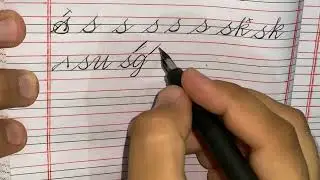 s s s s s s sk sk
s su sg